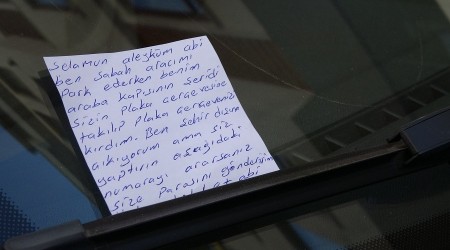 Selamun aleyküm abi
ben sabah aracımı
Park ederken benim
araba kapısının şeridi
sizin plaka çerçevesine
takılıp plaka çerçevenizi
kırdım. Ben şehir dışına
çıkıyorum ama siz
yaptırın aşağıdaki
numarayı ararsanız
size parasını göndereyim
abi